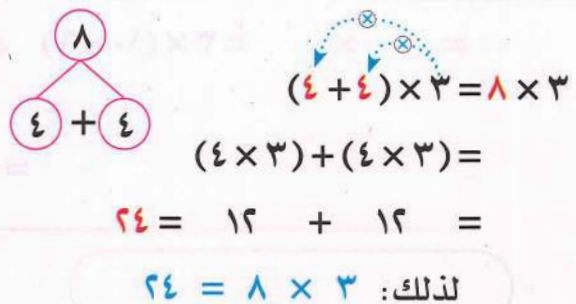 ٨
٤ + ٤
٣ × ٨ = ٣ × (٤ + ٤)
= (٣ × ٤) + (٣ × ٤)
= ١٢ + ١٢ = ٢٤
لذلك: ٣ × ٨ = ٢٤